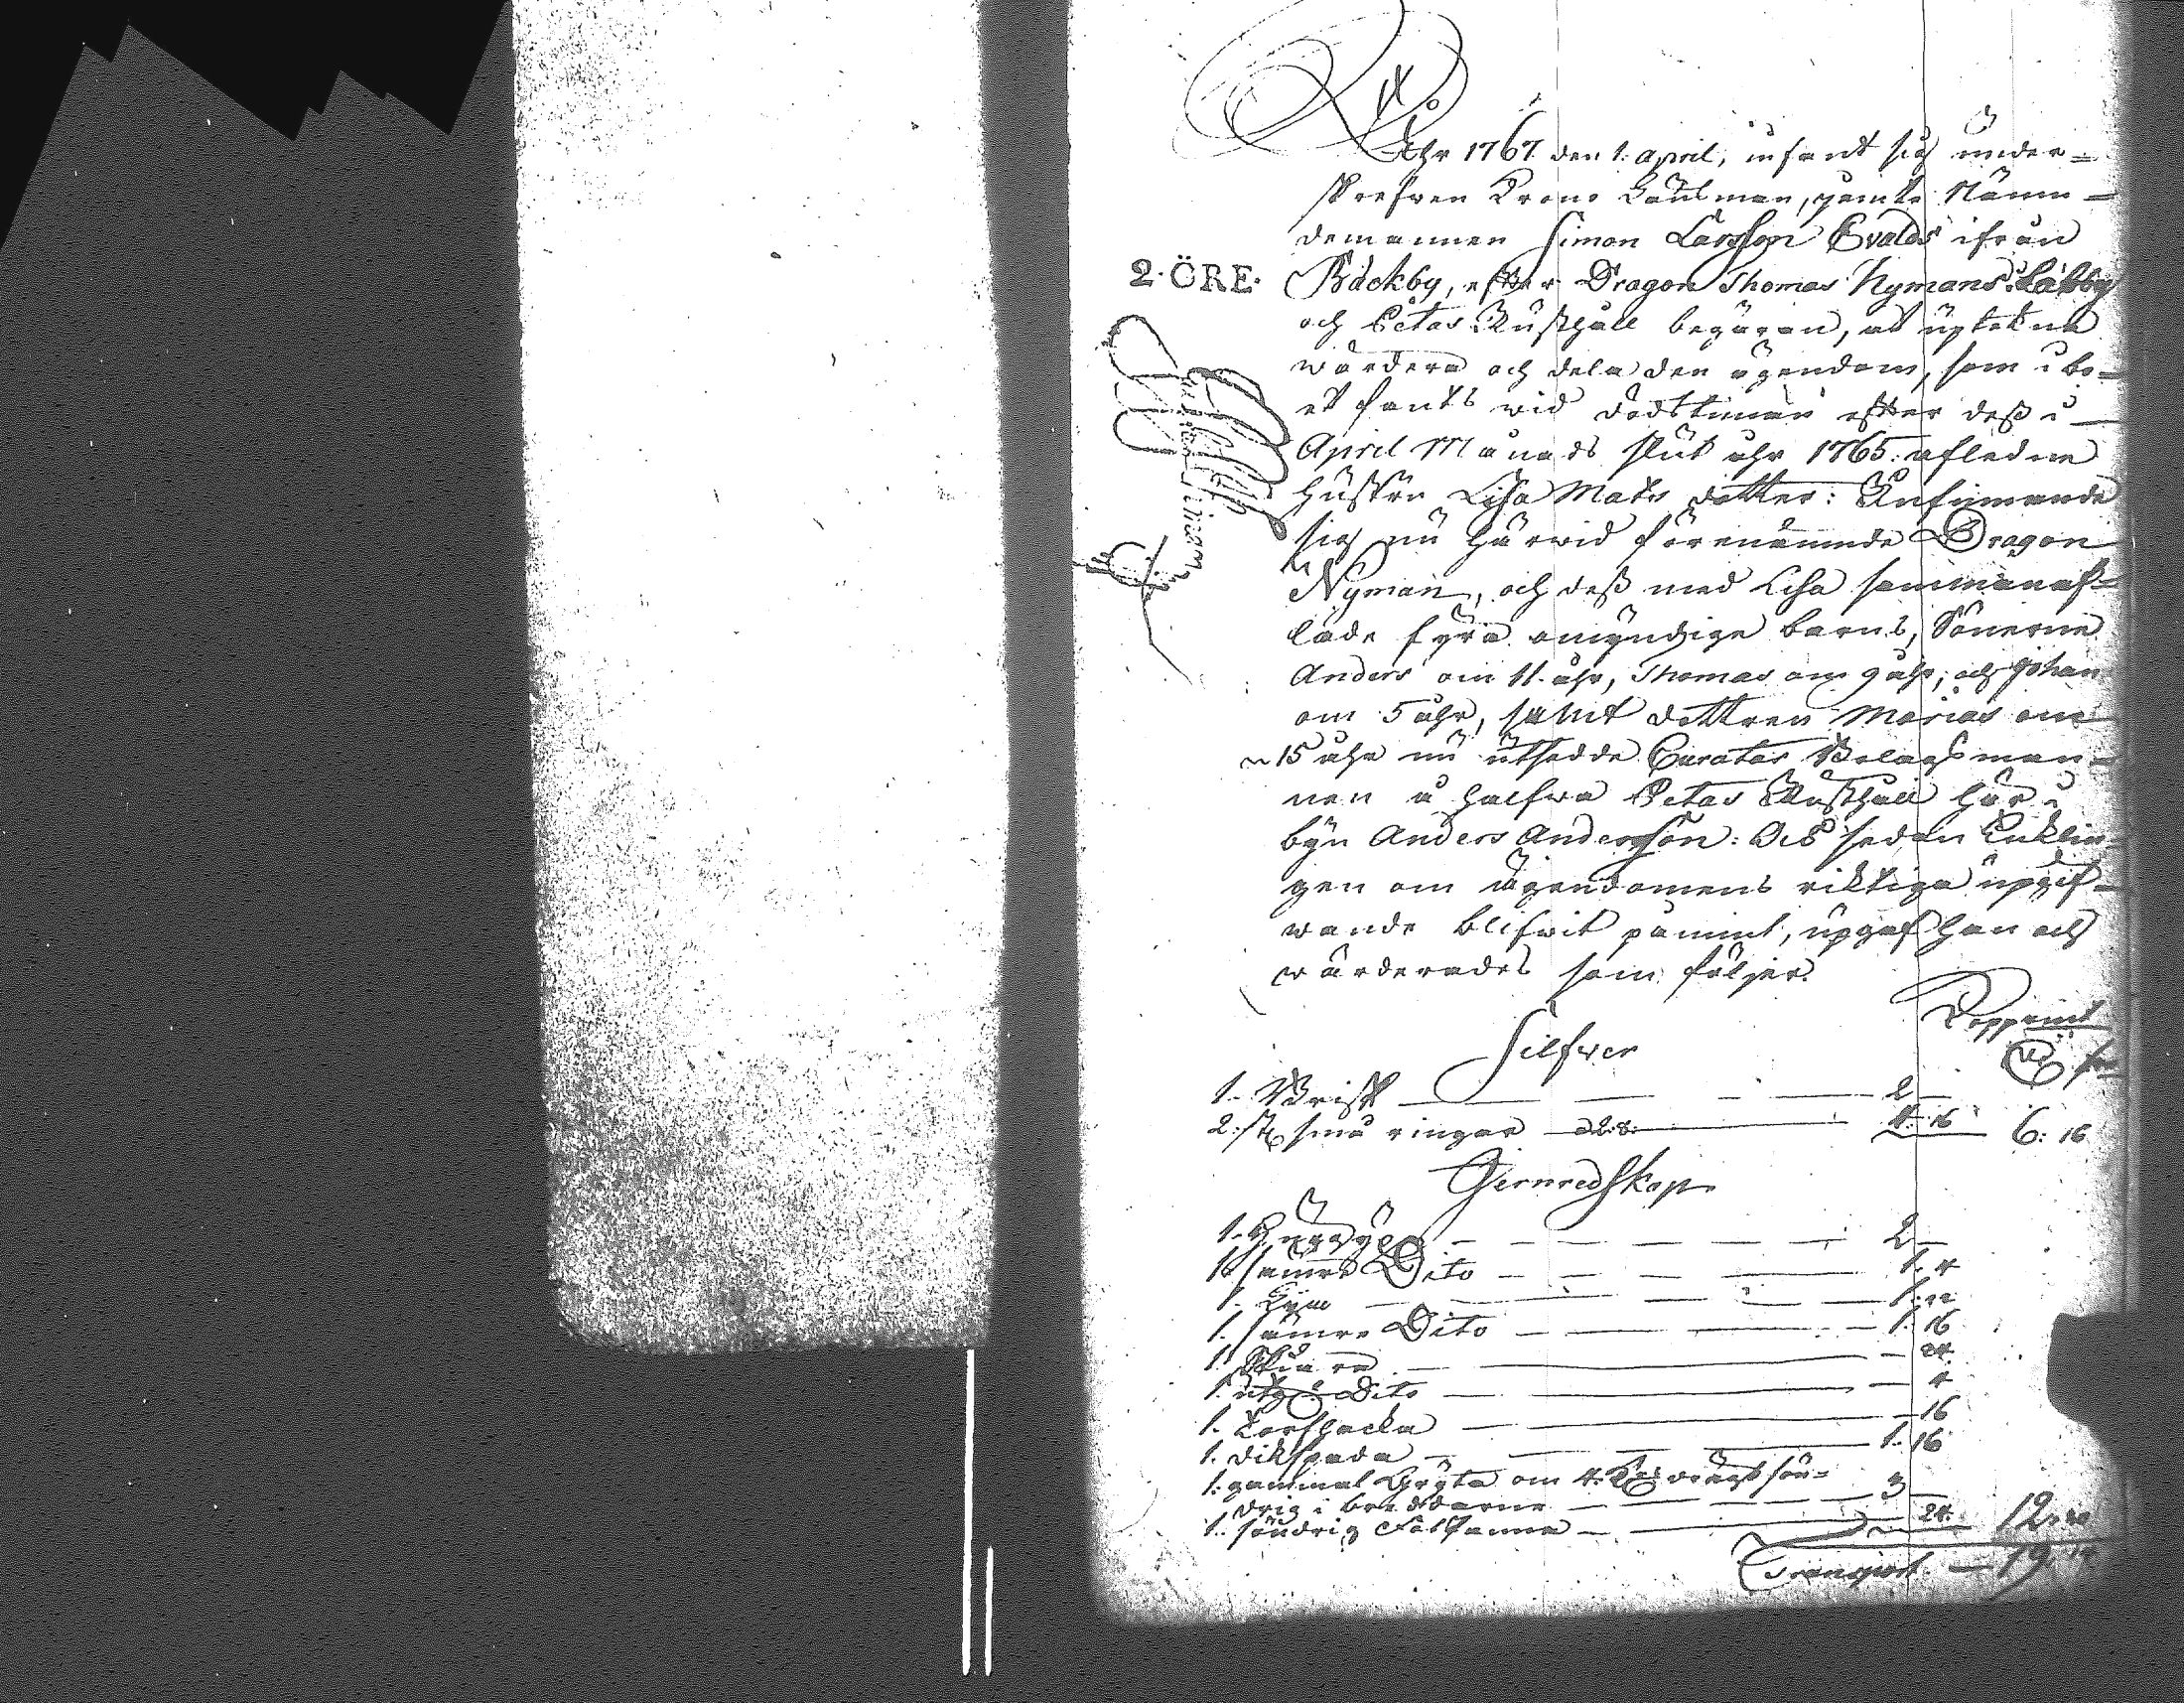 N:o
Åhr 1767 den 1. April, infant sig under-
skrefven Krono Länsman, jämte Näm-
demannen Simon Larsson Evalds ifrån
2·ÖRE·
Bäckby, efter Dragon Thomas Nymans
och Petas Rusthåll begäran, at uptekna
wärdera och dela den ägendom, som i bo-
et fants wid dödstiman efter dess i
April Månads slut åhr 1765. afledne
hustru Lisa Mats dotter: Infinnande
sig nu härwid förenämnde Dragon
Nyman, och dess med Lisa sammanaf-
lade fyra omyndige barns, Sönerne
Anders om 11. åhr, Thomas om 9 åhr, och Johan
om 5 åhr, samt dottren Marias om
15 åhr nu utsedde Curator Bolagsman-
nen å halfva Petas Rusthåll här i
byn Anders Andersson: Och sedan Enklin-
gen om ägendomens riktiga upgif-
wande blifvit påmint, upgaf han och
wärderades som följer.
Kopparmt
Silfwer
1. Brisk 2
2. st. små ringar a 2:8. 4: 16 6: 16
Jernredskap
1. Huggyxa 2
1. sämre Dito 1. 4
1. 1:
1. sämre Dito 1. 16
1. Skära 24
1. Dito 4
1. Torfhacka 16
1. dikspada 1. 16
1. gammal Gryta om 4. sön-
drig i bräddarne 3
1. söndrig 24. 12.
Transport 19.